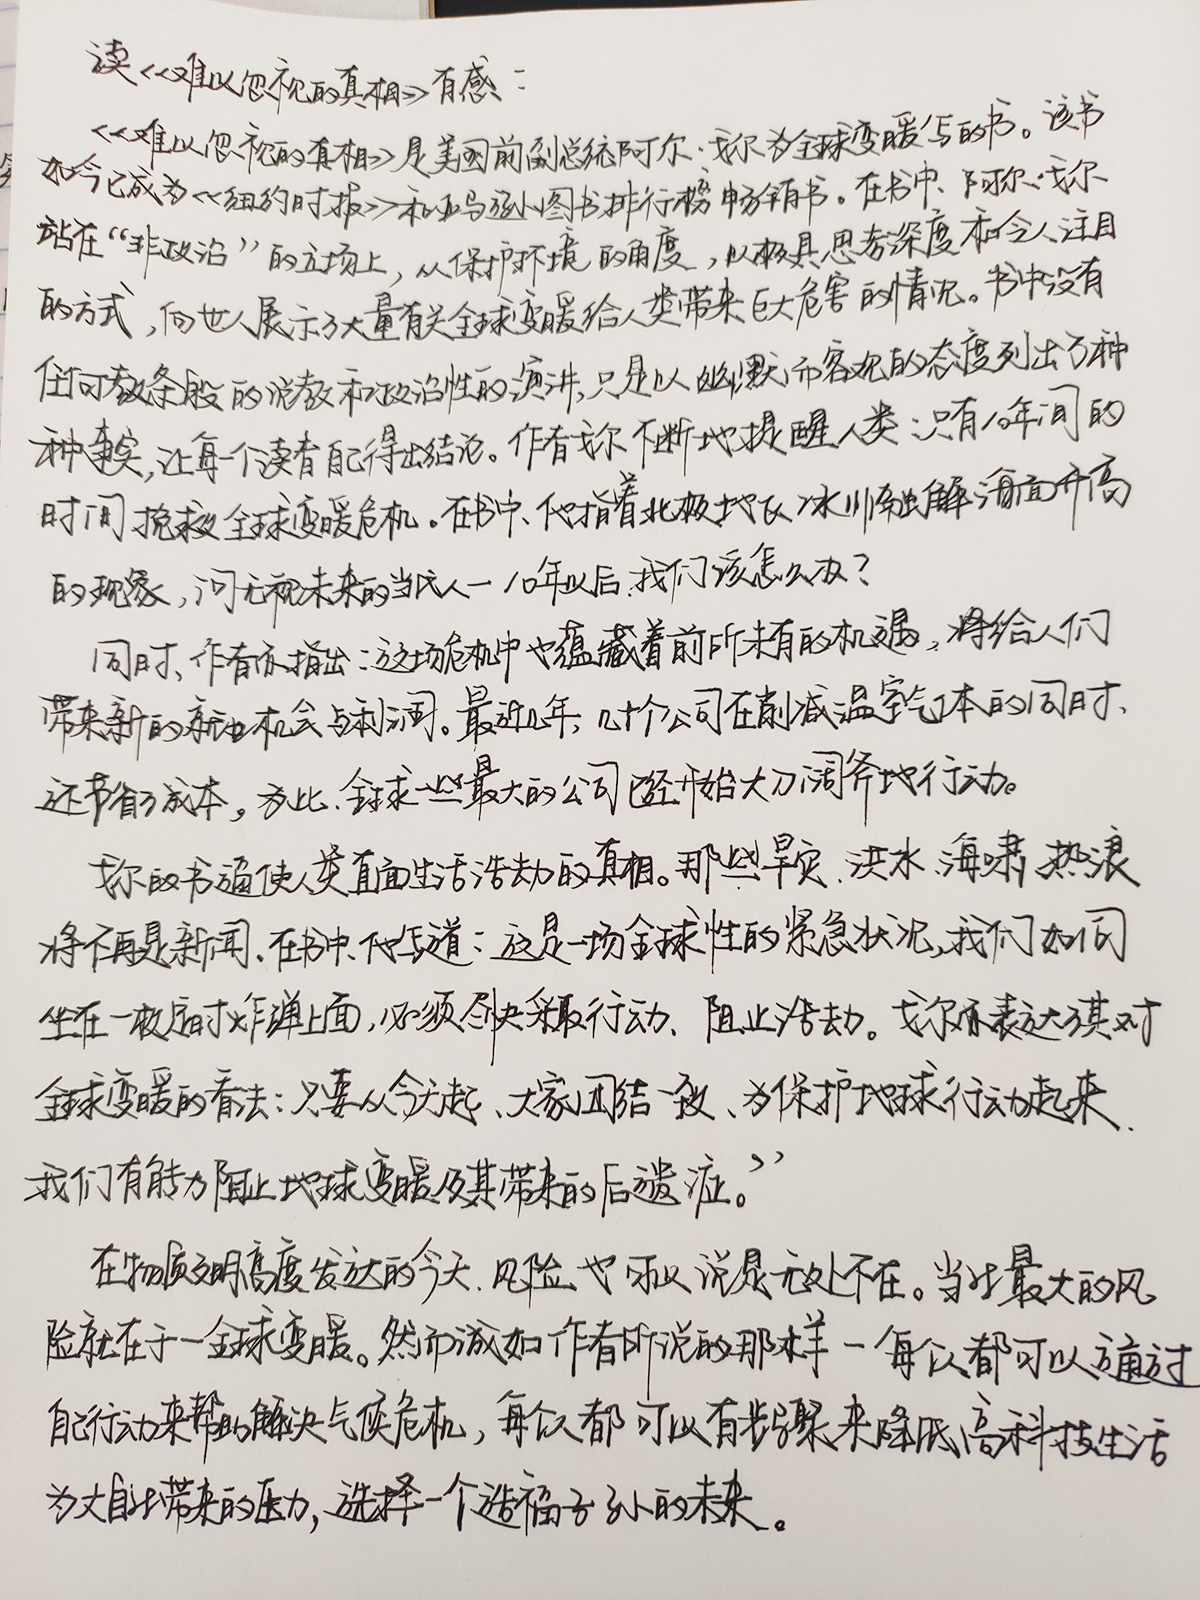 读《难以忽视的真相》有感：
《难以忽视的真相》是美国前副总统阿尔·戈尔为全球变暖写的书。该书
如今已成为《纽约时报》和亚马逊图书排行榜畅销书。在书中、阿尔·戈尔
站在“非政治”的立场上，从保护环境的角度，以极具思考深度和令人注目
的方式，向世人展示了大量有关全球变暖给人类带来巨大危害的情况。书中没有
任何教条般的说教和政治性的演讲，只是以幽默而客观的态度列出了种
种事实，让每个读者自己得出结论。作者戈尔不断地提醒人类：只有10年间的
时间挽救全球变暖危机。在书中、他指着北极地区冰川融解海面升高
的现象，问无视未来的当代人一10年以后，我们该怎么办？
同时、作者亦指出：这场危机中也蕴藏着前所未有的机遇，将给人们
带来新的就业机会与利润。最近几年，几十个公司在削减温室气体的同时、
还节省了成本。为此、全球一些最大的公司已经开始大刀阔斧地行动。
戈尔的书逼使人类直面生活浩劫的真相。那些旱灾、洪水、海啸、热浪
将不再是新闻、在书中、他写道：这是一场全球性的紧急状况，我们如同
坐在一枚定时炸弹上面，必须尽快采取行动、阻止浩劫。戈尔亦表达了其对
全球变暖的看法：只要从今天起、大家团结一致、为保护地球行动起来、
我们有能力阻止地球变暖及其带来的后遗症。”
在物质文明高度发达的今天、风险也可以说是无处不在。当此最大的风
险就在于一全球变暖。然而诚如作者所说的那样一每个人都可以通过
自己行动来帮助解决气候危机，每个人都可以有步骤来降低高科技生活
为大自然带来的压力，选择一个造福子孙的未来。